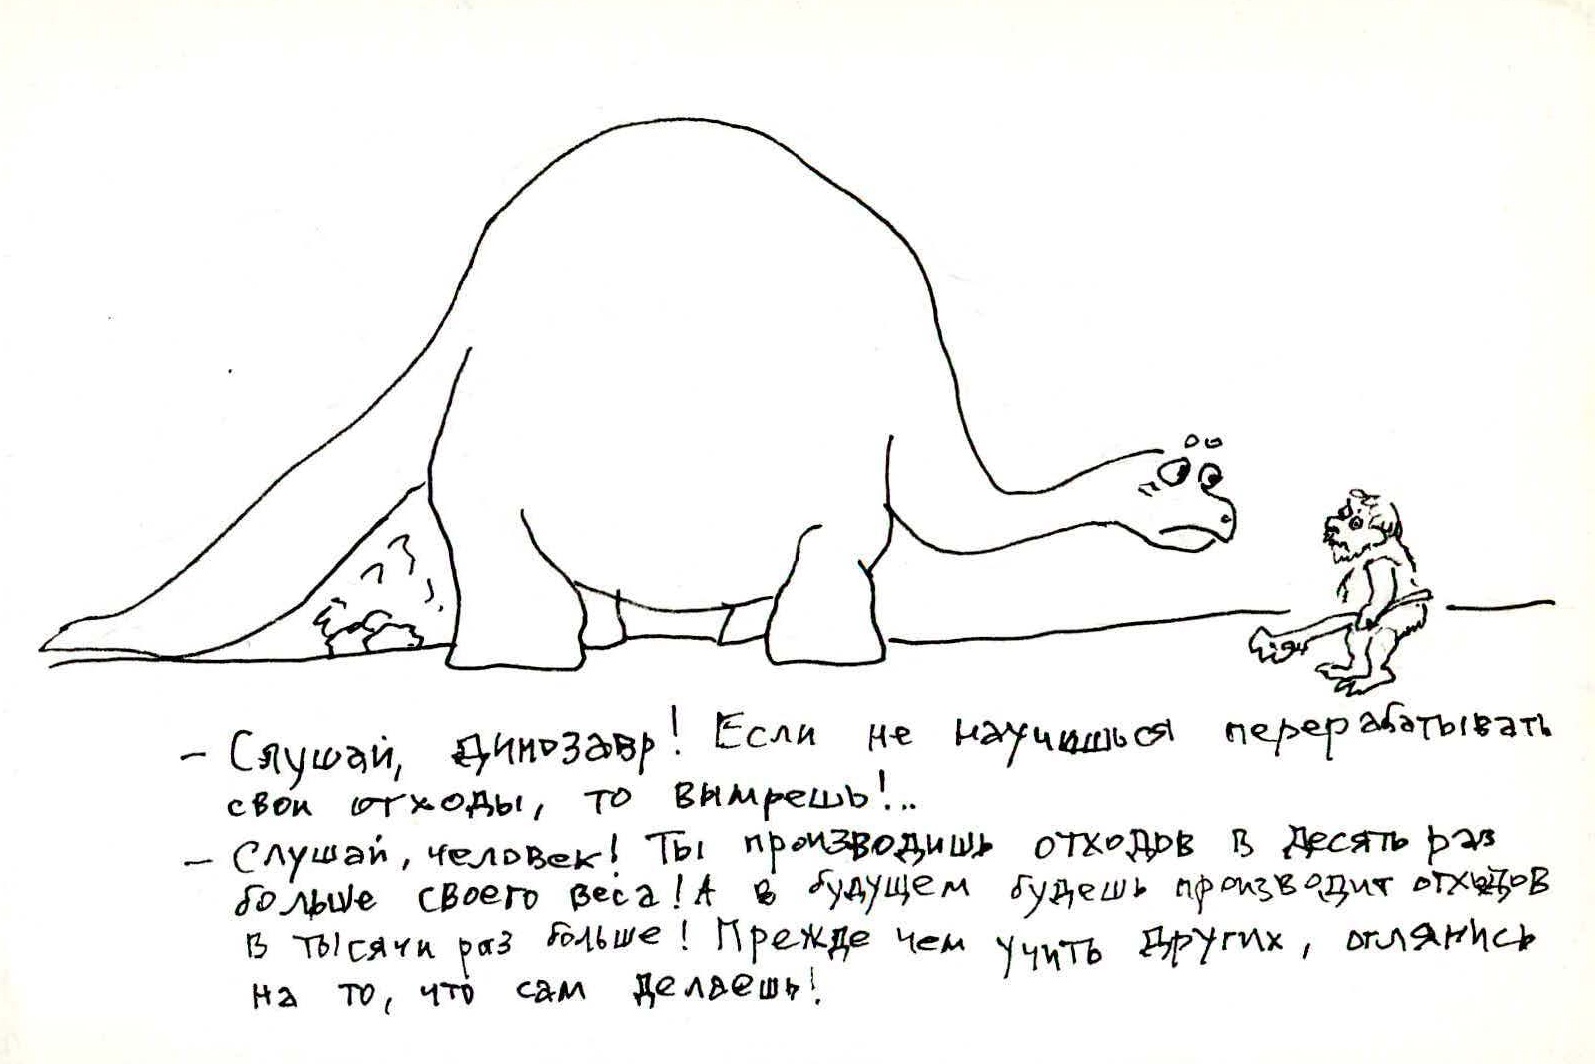 – Слушай, динозавр! Если не научишься перерабатывать
свои отходы, то вымрешь!..
– Слушай, человек! Ты производишь отходов в десять раз
больше своего веса! А в будущем будешь производит отходов
в тысячи раз больше! Прежде чем учить других, оглянись
на то, что сам делаешь!